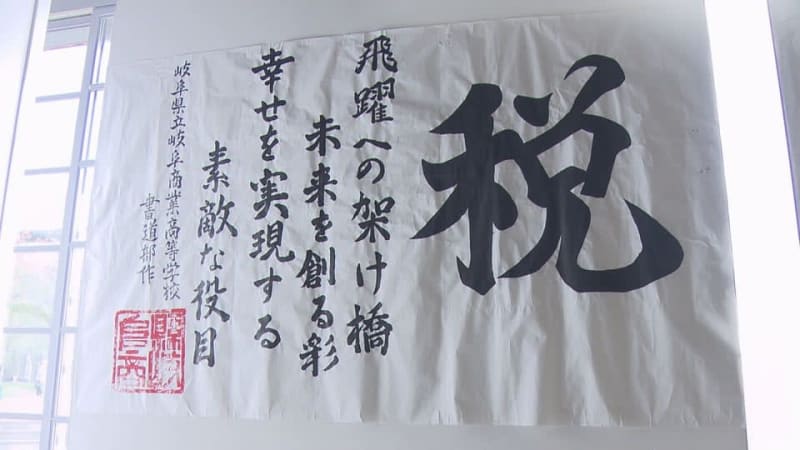 税
飛躍への架け橋
未来を創る彩
幸せを実現する
素敵な役目
岐阜県立岐阜商業高等学校
書道部作